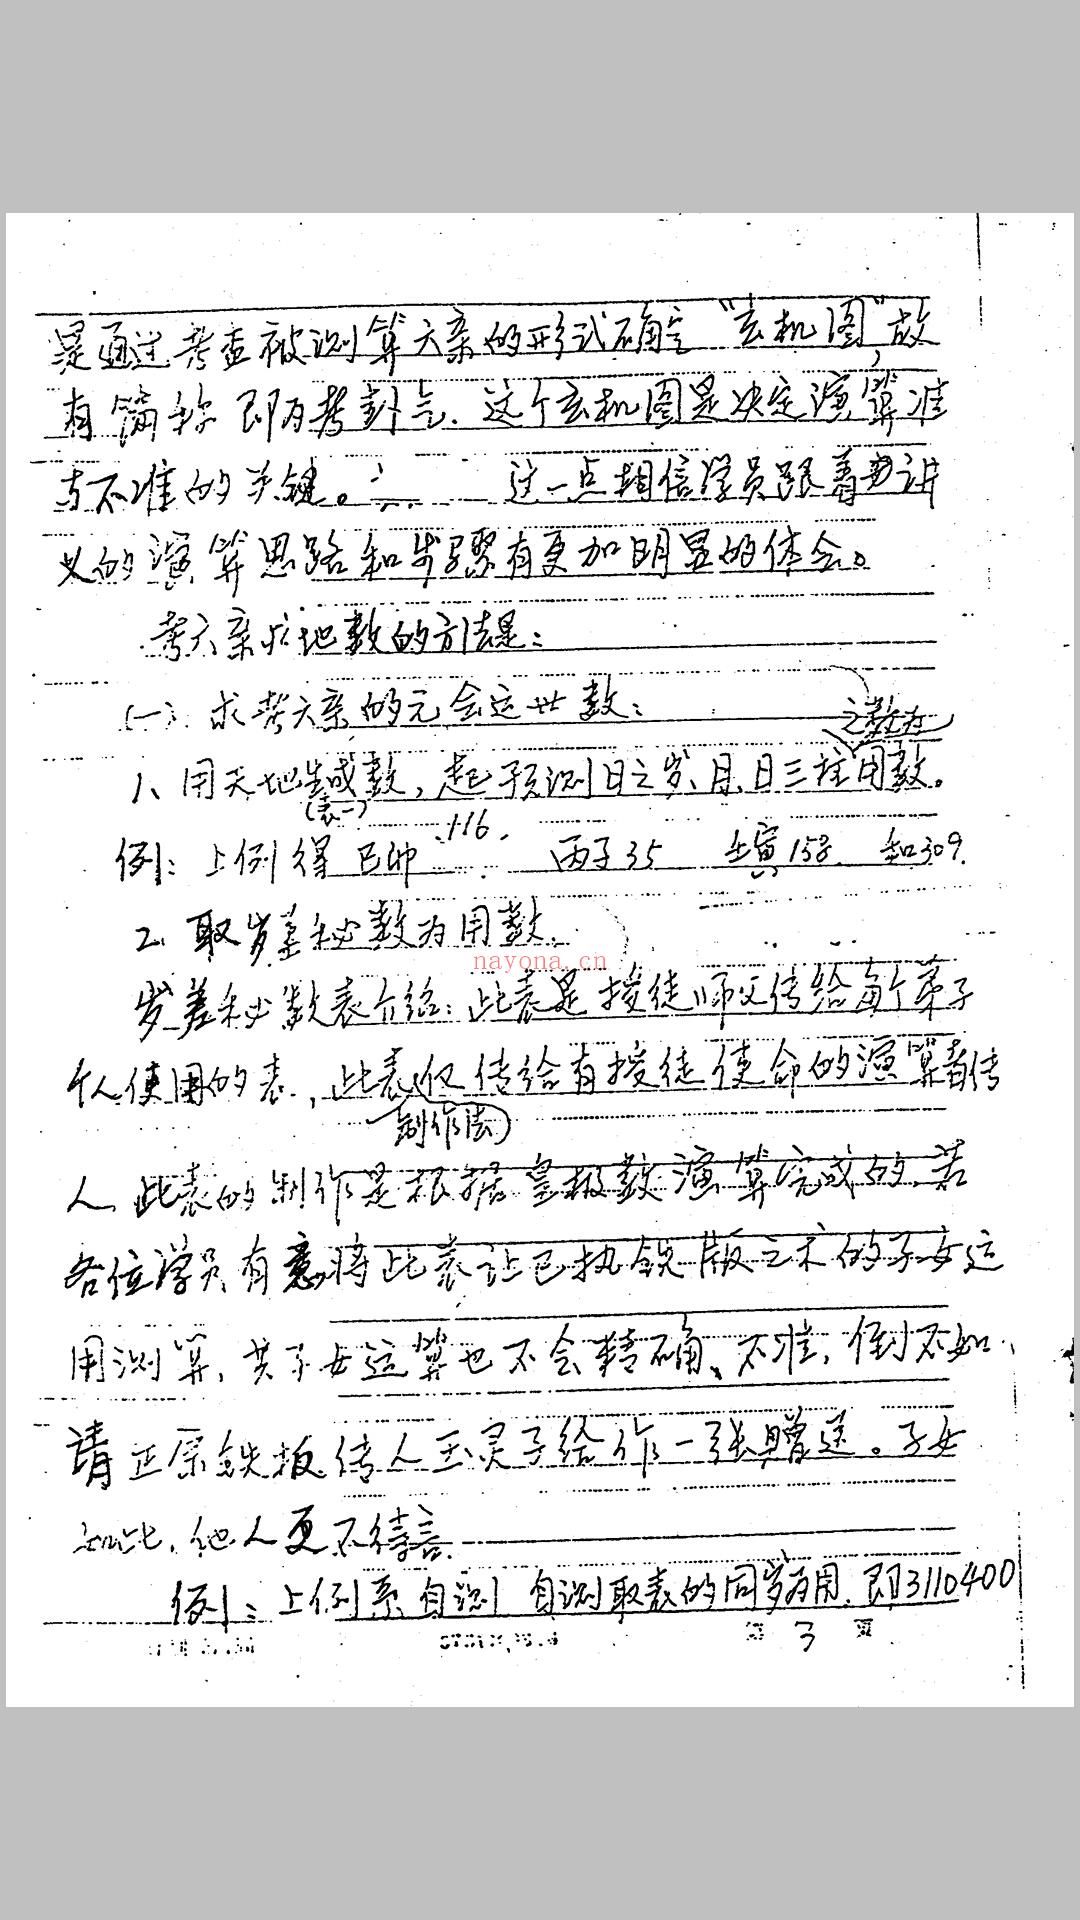 是通过考查被测算六亲的形式确定“玄机图”,故
有简称 即为考卦气. 这个玄机图是决定演算准
与不准的关键。 这一点相信学员跟着讲
义的演算思路和步骤有更加明显的体会。
考六亲占地数的方法是:
(一). 求考六亲的元会运世数:
之数为
1、用天地生成数, 起予测日之岁、月、日三柱用数。
(表一)
例: 上例得 己卯 116. 丙子35 壬寅158. 和309.
2. 取岁差秘数为用数.
nayona.cn
岁差秘数表介绍: 此表是授徒师父传给每个弟子
个人使用的表, 此表仅传给有授徒使命的演算者传
制作法
人. 此表的制作是根据皇极数演算完成的. 若
各位学员有意将此表让已执铁版之术的子女运
用测算, 其子女运算也不会精确、不准, 倒不如
请正宗铁板传人玉灵子给作一张赠送。子女
如此, 他人更不待言.
例: 上例系自测 自测取表的同岁为用. 即3110400
第 3 页